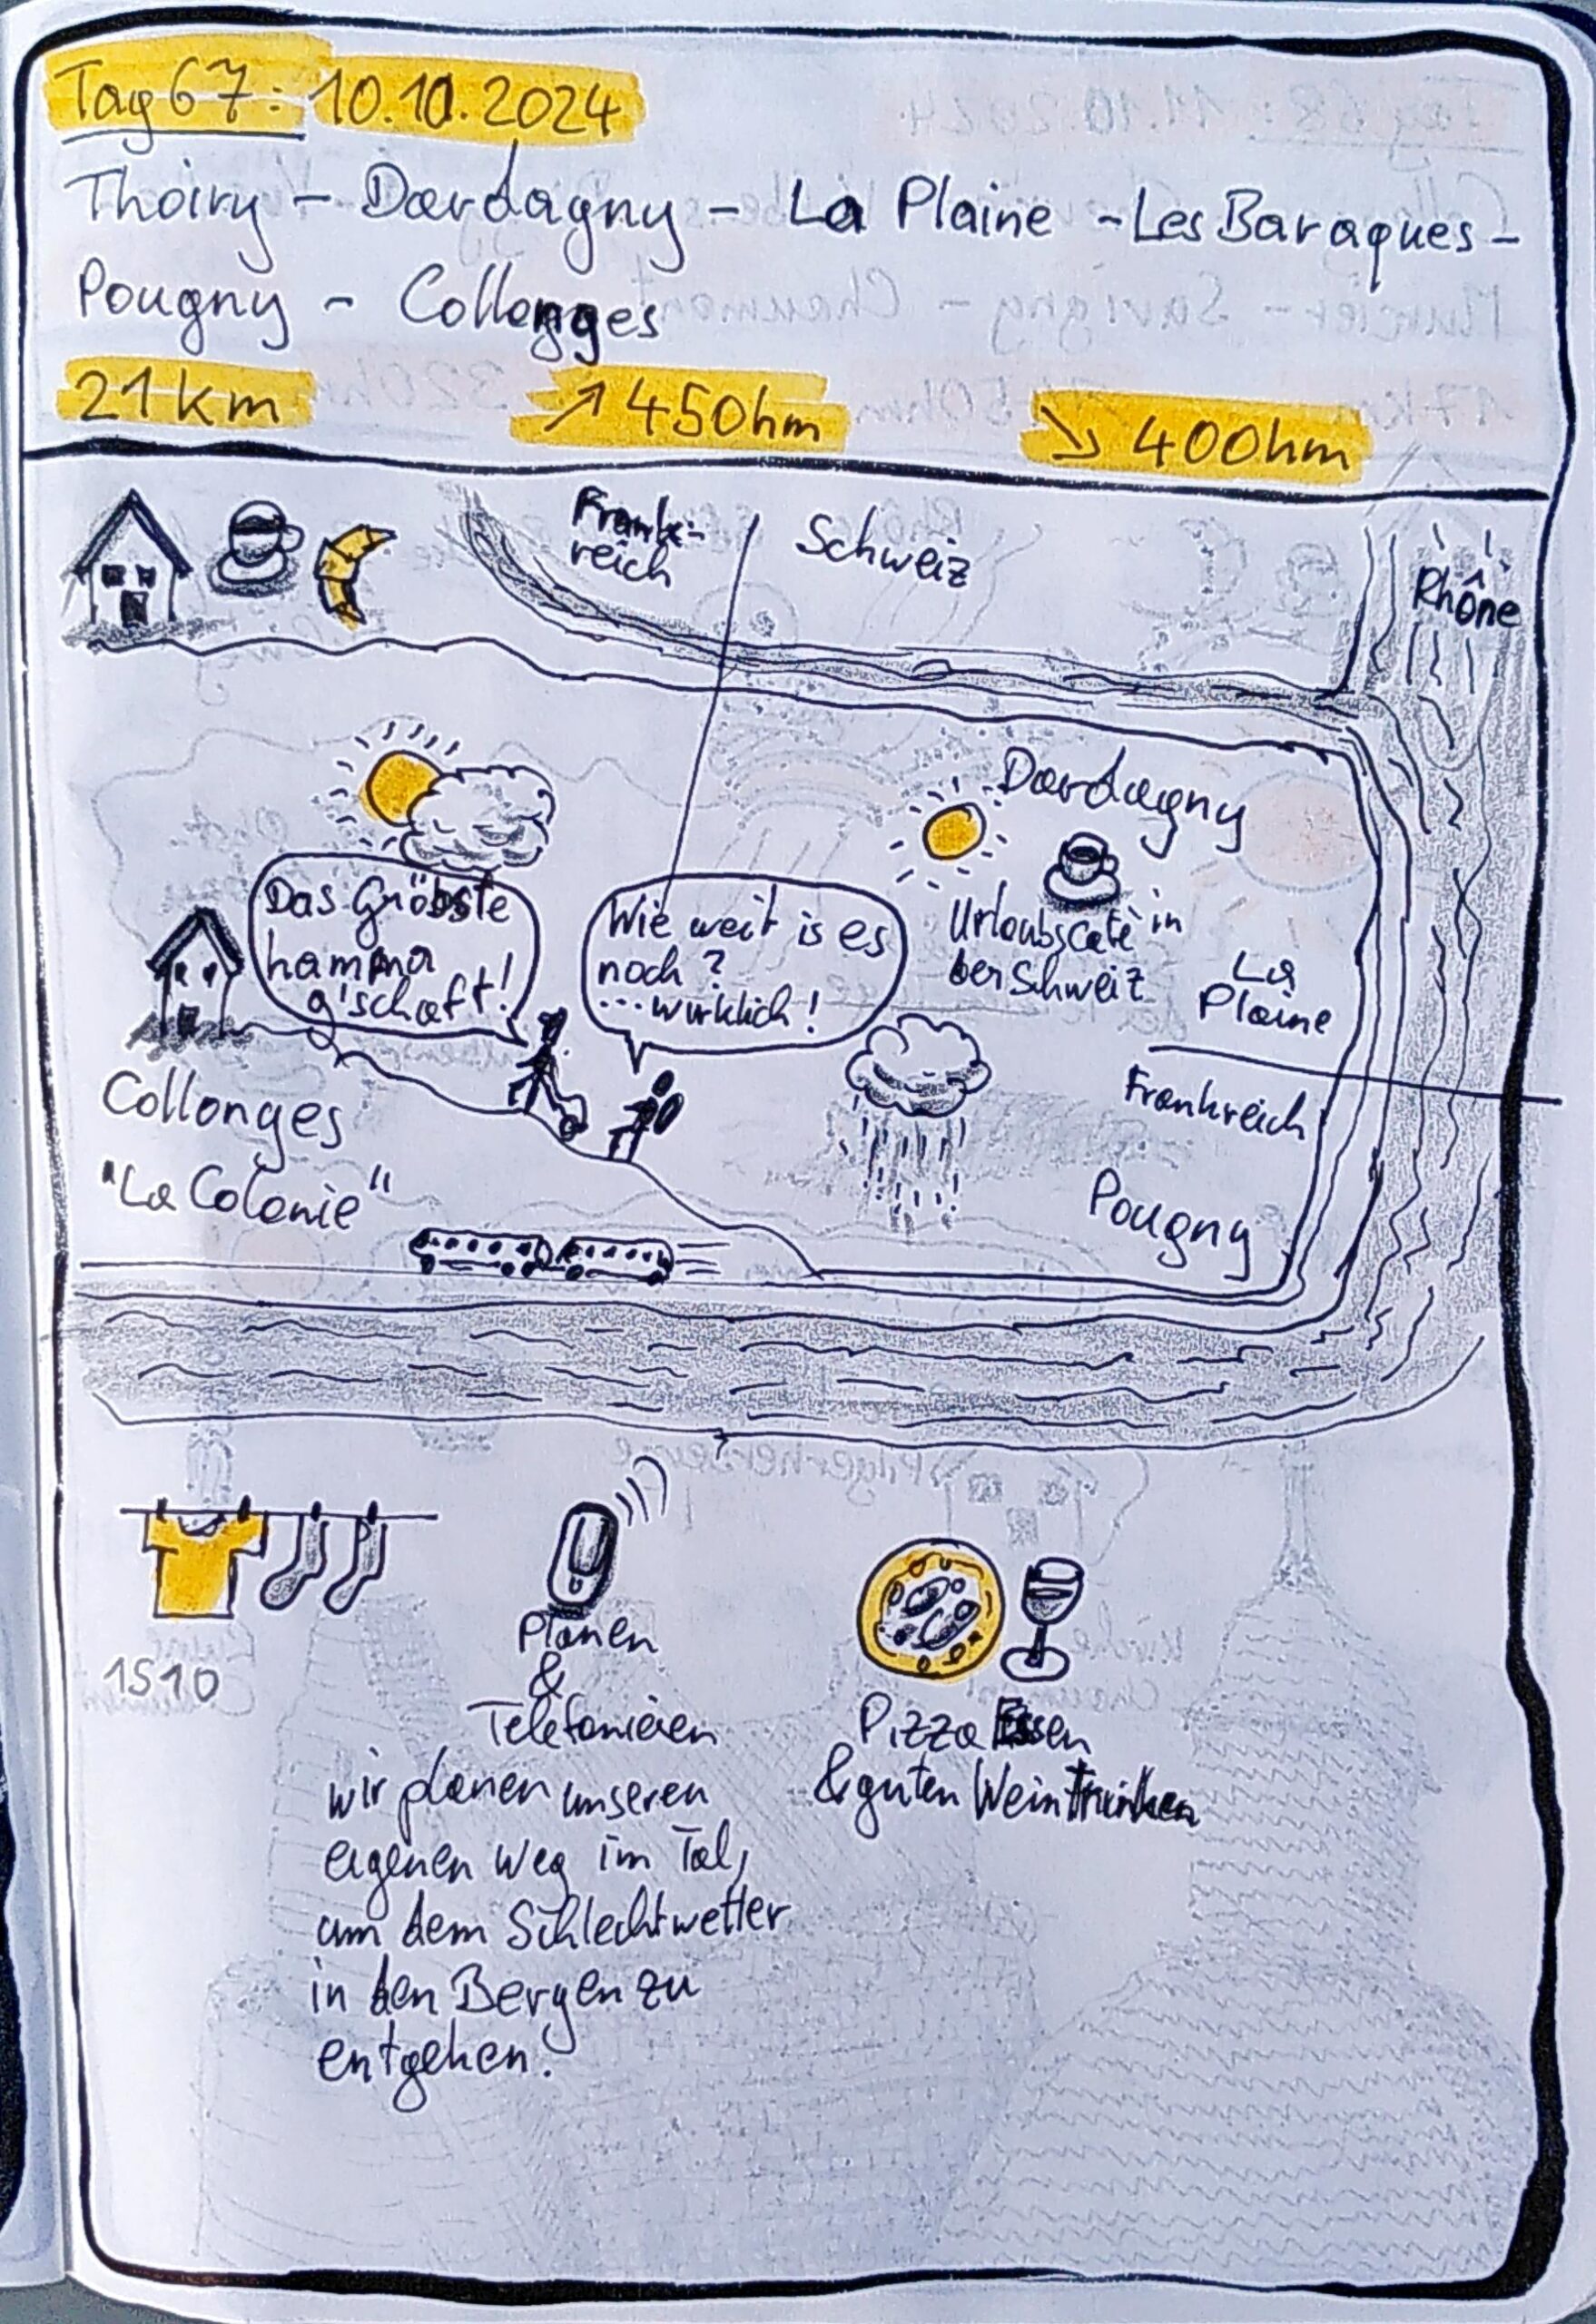 Tag 67: 10.10.2024
Thoiry - Dardagny - La Plaine - Les Baraques -
Pougny - Collonges
21 km ↗ 450hm ↘ 400hm
Frank-
reich
Schweiz
Rhône
Dardagny
Das Gröbste
hamma
g'schaft!
Wie weit is es
noch?
... wirklich!
Urlaubscafé in
der Schweiz
La
Plaine
Frankreich
Collonges
"La Colonie"
Pougny
1510
Planen
&
Telefonieren
wir planen unseren
eigenen Weg im Tal,
um dem Schlechtwetter
in den Bergen zu
entgehen.
Pizza Essen
& guten Wein Trinken